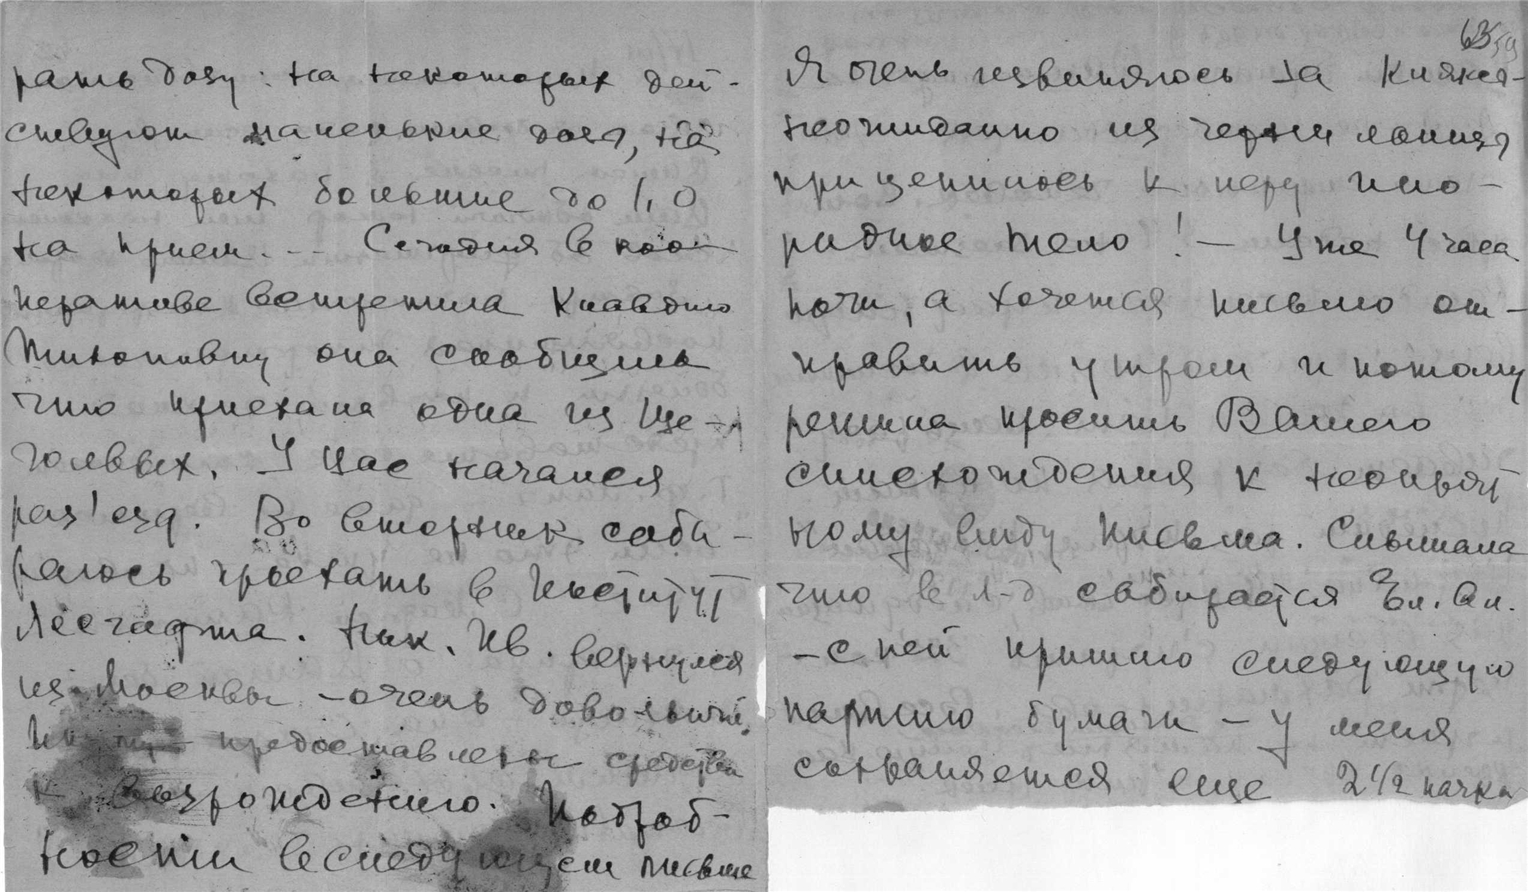 рать дозу: на некоторых дей-
ствуют маленькие дозы, на
некоторых большие до 1,0
на прием. -- Сегодня в кооп-
перативе встретила Клавдию
Тихоновну она сообщила
что приехала одна из Ще-
голевых. У Нас начался
раз'езд. Во вторник соби-
раюсь проехать в Институт
Лесгафта. Ник. Ив. вернулся
из Москвы - очень довольный.
предоставлены средства
к возрождению. Подроб-
ности в следующем письме
63
Я очень извиняюсь за
неожиданно из чернильницы
прицепилось к перу ино-
родное тело! - Уже 4 часа
ночи, а хочется письмо от-
править утром и потому
решила просить Вашего
снисхождения к неопрят
ному виду письма. Слышала
что в Л-д собирается Ел. Ал.
- с ней пришлю следующую
партию бумаги - у меня
сохраняется еще 2 1/2 пачки